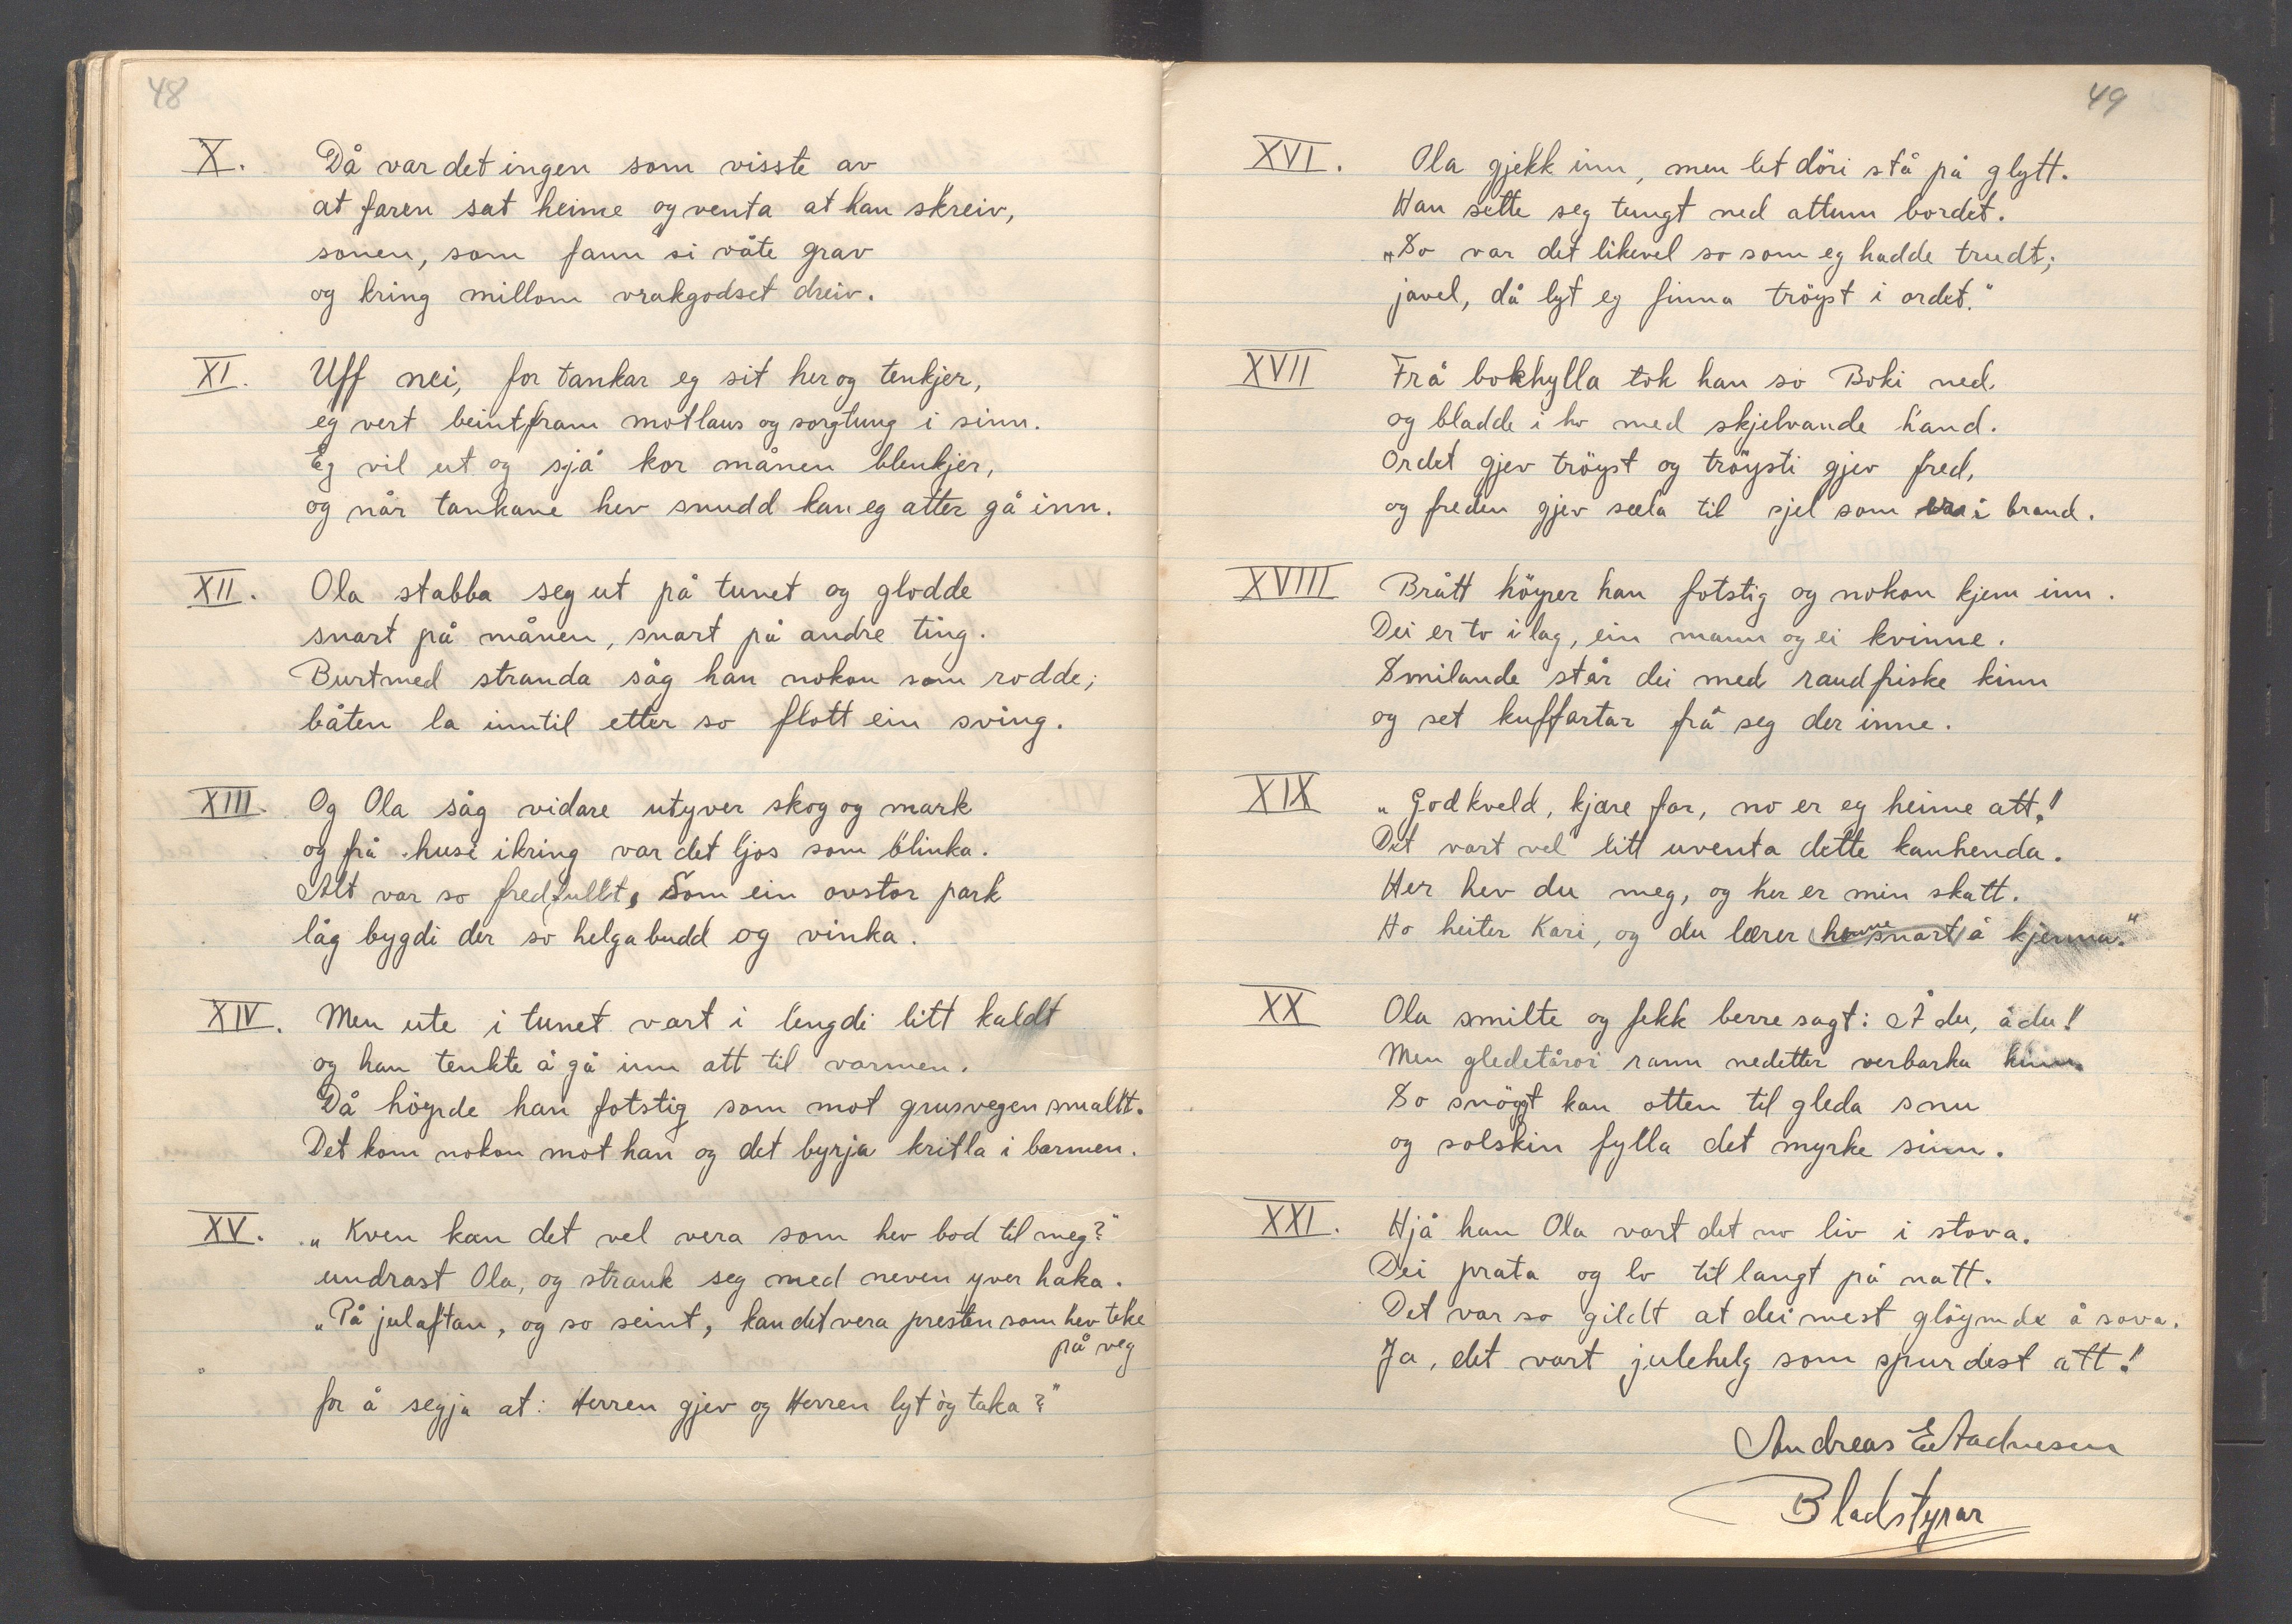 48
X. Då var det ingen som visste av
at faren sat heime og venta at han skreiv,
sonen, som fann si våte grav
og kring millom vrakgodset dreiv.
XI. Uff nei, for tankar eg sit her og tenkjer,
eg vert beint fram motlaus og sorgtung i sinn.
Eg vil ut og sjå kor månen blenkjer,
og når tankane hev snudd kan eg atter gå inn.
XII. Ola stabba seg ut på tunet og glodde
snart på månen, snart på andre ting.
Burtmed stranda såg han nokon som rodde;
båten la inntil etter so flott ein sving.
XIII. Og Ola såg vidare utyver skog og mark
og frå husi ikring var det ljos som blinka.
Alt var so fredfullt, Som ein ovstor park
låg bygdi der so helgabudd og vinka.
XIV. Men ute i tunet vart i lengdi litt kaldt
og han tenkte å gå inn att til varmen.
Då höyrde han fotstig som mot grusvegen smallt.
Det kom nokon mot han og det byrja kritla i barmen.
XV. „Kven kan det vel vera som hev bod til meg?"
undrast Ola, og strauk seg med neven yver haka.
„På julaftan, og so seint, kan det vera presten som hev teke
på veg
for å segja at: Herren gjev og Herren lyt òg taka?"
49
XVI. Ola gjekk inn, men let döri stå på glytt.
Han sette seg tungt ned attum bordet.
„So var det likevel so som eg hadde trudt;
javel, då lyt eg finna tröyst i ordet."
XVII Frå bokhylla tok han so Boki ned
og bladde i ho med skjelvande hand.
Ordet gjev tröyst og tröysti gjev fred,
og freden gjev sæla til sjel som er i brand.
XVIII Brått höyrer han fotstig og nokon kjem inn.
Dei er to i lag, ein mann og ei kvinne.
Smilande står dei med raudfriske kinn
og set kuffartar frå seg der inne.
XIX „Godkveld, kjære far, no er eg heime att!
Det vart vel litt uventa dette kanhenda.
Her hev du meg, og her er min skatt.
Ho heiter Kari, og du lærer henne snart å kjenna."
XX Ola smilte og fekk berre sagt: Å du, å du!
Men gledetåror rann nedetter verbarka kinn.
So snögt kan otten til gleda snu
og solskin fylla det myrke sinn.
XXI. Hjå han Ola vart det no liv i stova.
Dei prata og lo til langt på natt.
Det var so gildt at dei mest glöymde å sova.
Ja, det vart julehelg som spurdest att!
Andreas E
Bladstyrar